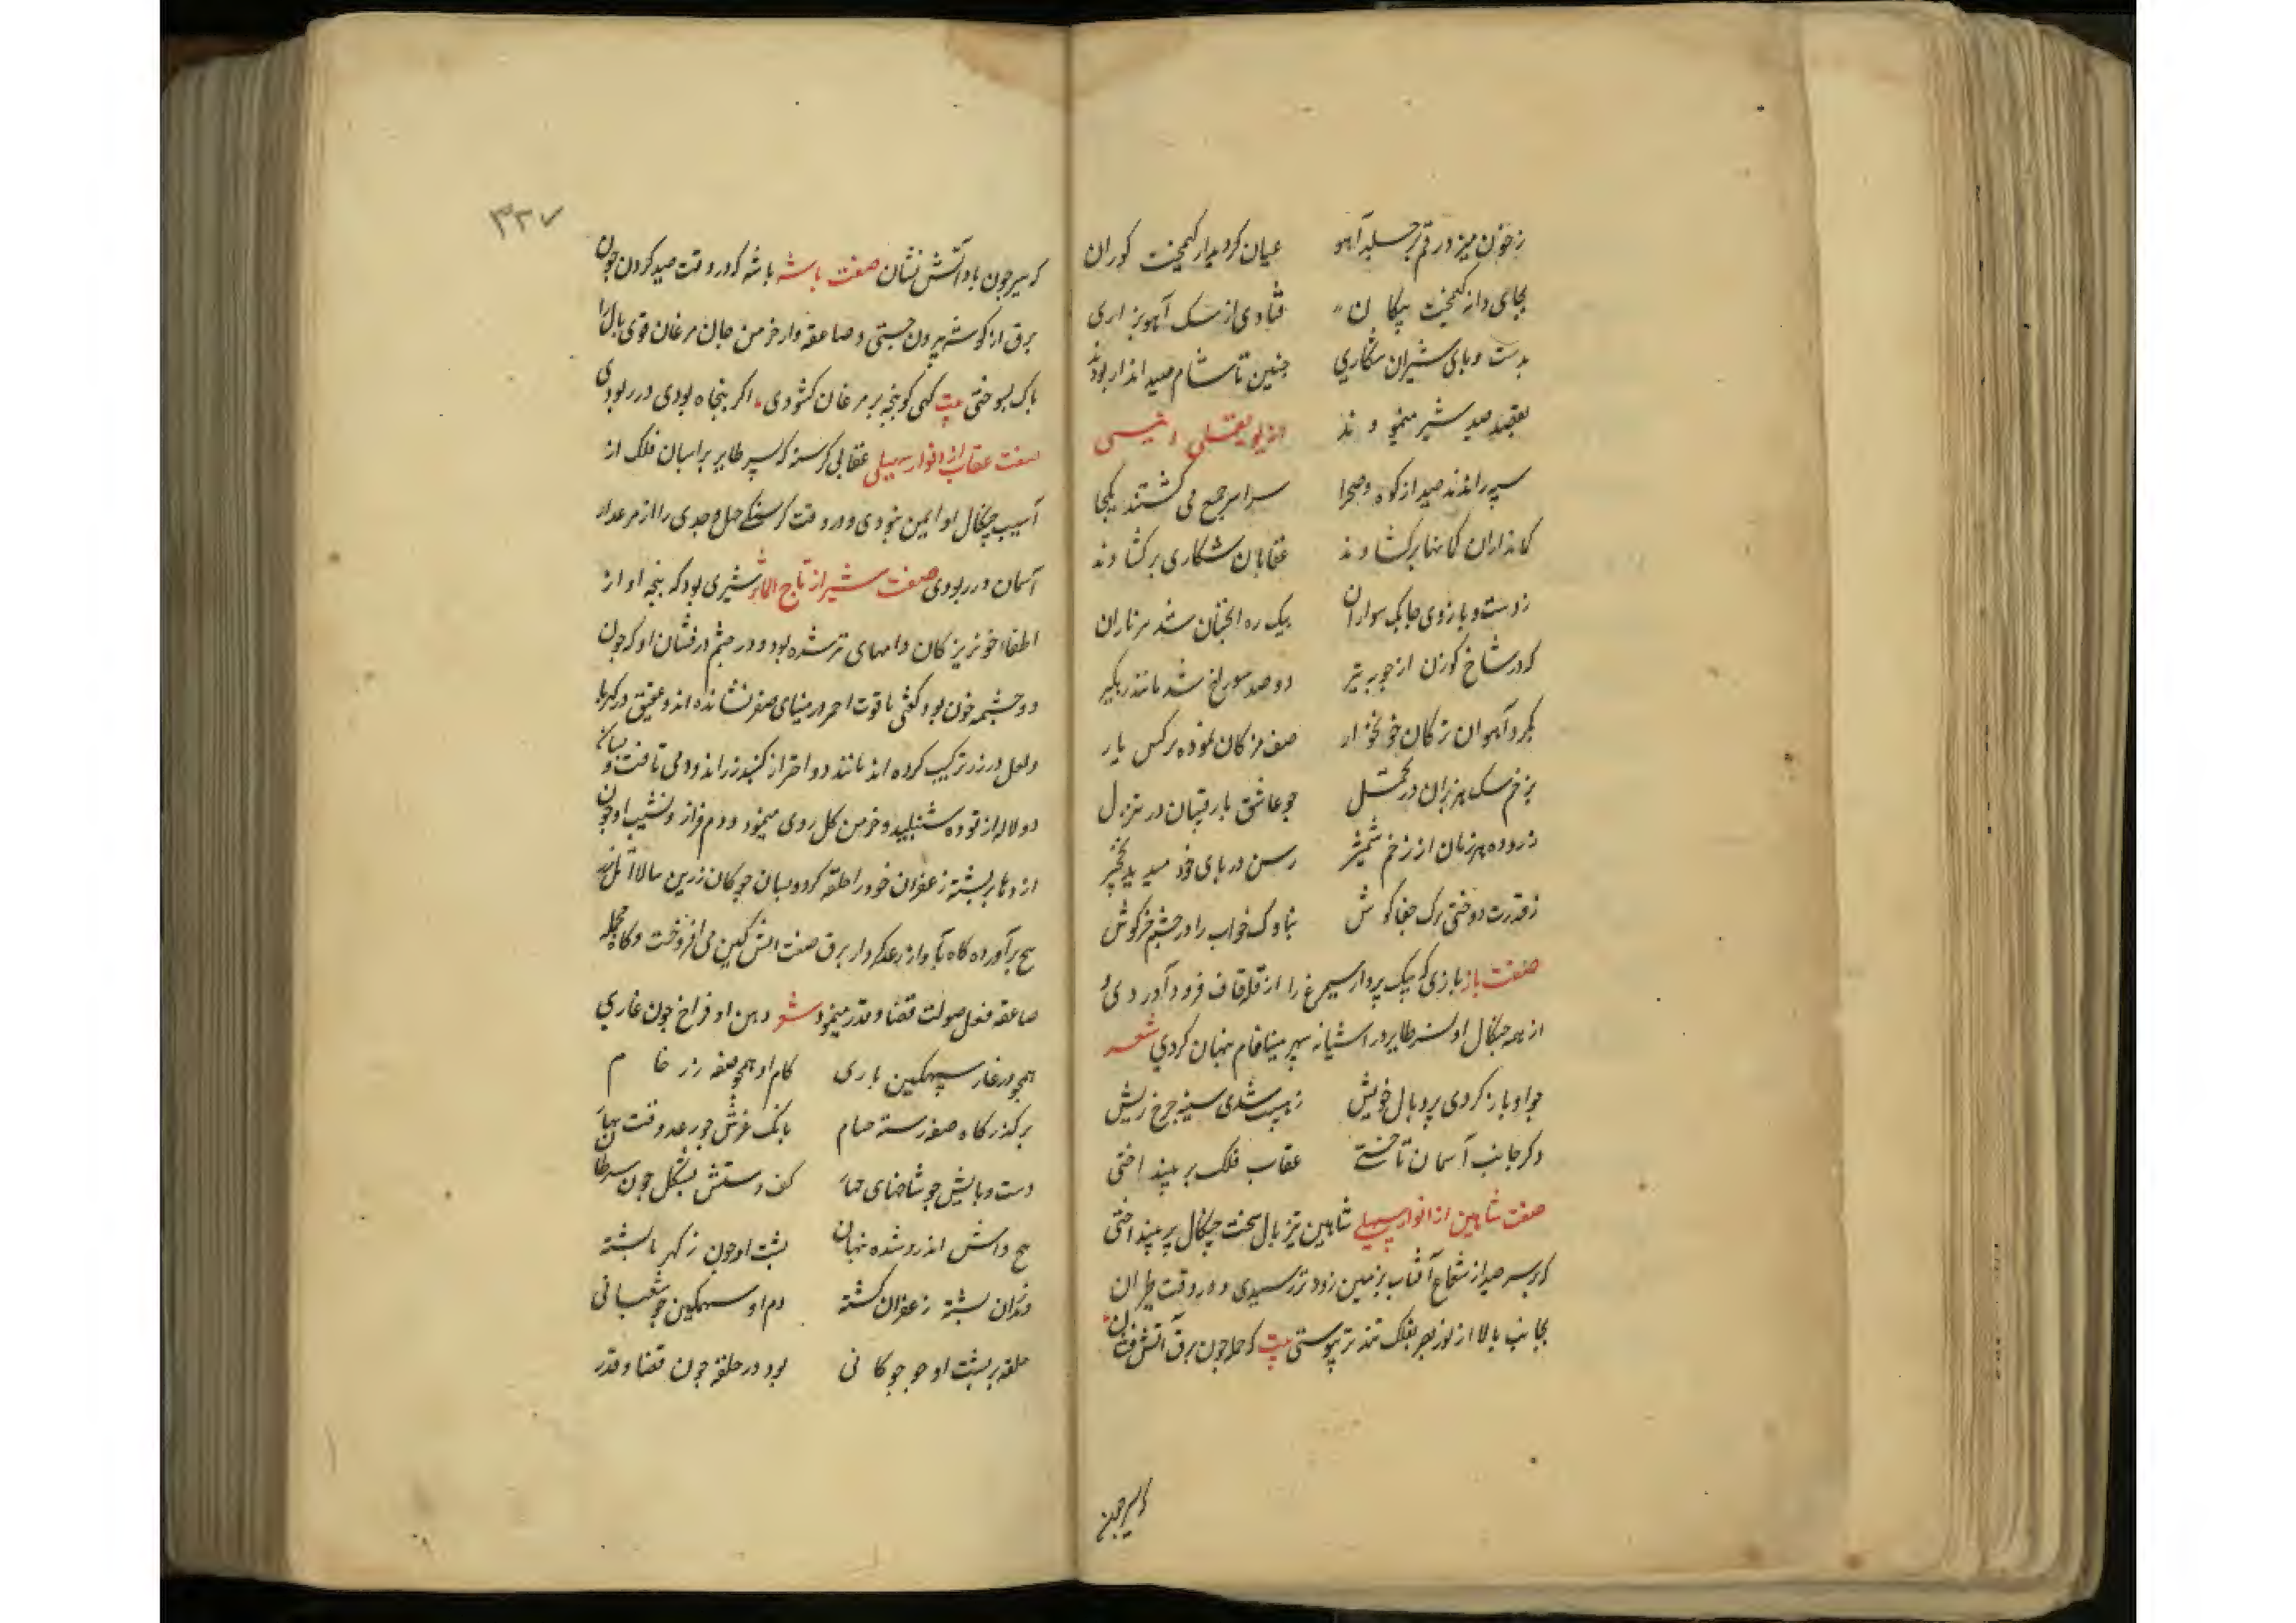 ز خون میزد رقم بر جلد آهو عیان کرد یدار کیمخت کوران
بجای دانه کیمخت پیکان فتادی از سک آهو بزاری
بدست و پای شیران شکاری چنین تا شام صید انداز بودند
بقصد صید شیر مینمودند
سپه راندند صید از کوه و صحرا سراسر جمع می کشتند یکجا
کمانداران کمانها برکشادند عقابان شکاری برکشادند
ز دست و بازوی چابک سواران بیک ره آنچنان شد تیرباران
که در شاخ کوزن از چوبه تیر دو صد سوراخ شد مانند
بکرد آهوان ترکان خونخوار صف مژکان نموده نرکس یار
بزخم سک هزبران در چو عاشق با رقیبان در تنزل
هزبران از زخم شمشیر رسن در پای خود میدید نخچیر
ز قدرت دوختی ترک جفاکوش بناوک خواب را در چشم خرکوش
صفت باز بازی که بیک پرواز سیمرغ را از قله قاف فرود آوردی و
از بهمه چنکال او نسر طایر در آشیانه سپهر مینافام نهان کردی شعر
چو او باز کردی پر و بال خویش ز هیبت شدی سینه چرخ ریش
وکر جانب آسمان تاختی عقاب فلک پر بینداختی
صفت شاهین از انوار سهیلی شاهین تیز بال سخت چنکال پر بینداختی
که بر سر صید از شعاع آفتاب بزمین زودتر رسیدی و در وقت طیران
بجانب بالا از نور بصر بفلک تندتر پیوستی بیت که حمله چون برق آتش فشان
که سیر چون
۳۲۷
که سیر چون باد آتش نشان صفت باشه باشه که در وقت صید کردن چون
برق از کوشه بیرون جستی و صاعقه وار خرمن جان مرغان قوی بال را
پاک بسوختی بیت کهی کو پنجه بر مرغان کشودی اکر پنجاه بودی در ربودی
صفت عقاب از انوار سهیلی عقابی کرسنه که نسر طایر بر آسمان فلک از
آسیب چنکال او ایمن نبودی و در وقت کرسنکی حمل و جدی را از مرغزار
آسمان در ربودی صفت شیر از تاج المآثر شیری بود که پنجه او از
اطفاء خونریز کان دامهای تر شده بود و در چشم درفشان او که چون
دو چشمه خون بود کفتی یاقوت احمر در مینای صفر نشانده اند و عقیق در کهربا
و لعل در زر ترکیب کرده اند مانند دو اختر از کنبد زراندود می تافت و بسان
دو لاله از توده شنبلید و خرمن کل روی مینمود و دم فراز و نشیب او چون
اژدها بر پشته زعفران خود را حلقه کرده و بسان چوکان زرین
برآورده کاه بآواز رعد کردار برق صفت آتش کین می افروخت و کاه بحمله
صاعقه فعل صولت قضا و قدر مینمود شعر دهن او فراخ چون غاری
همچو در غار سهمکین ماری کام او همچو صفه زر خام
بر کذرکاه صفه رسته حسام بانک غرش چو رعد وقت بهار
دست و پایش چو شاخهای چنار کف دستش بشکل چون سرطان
پنج داس اندرو شده نهان پشت او چون ز کهربا پشته
دندان پشته زعفران کشته دم او سهمکین چو ثعبانی
حلقه بر پشت او چو چوکانی بود در حلقه چون قضا و قدر